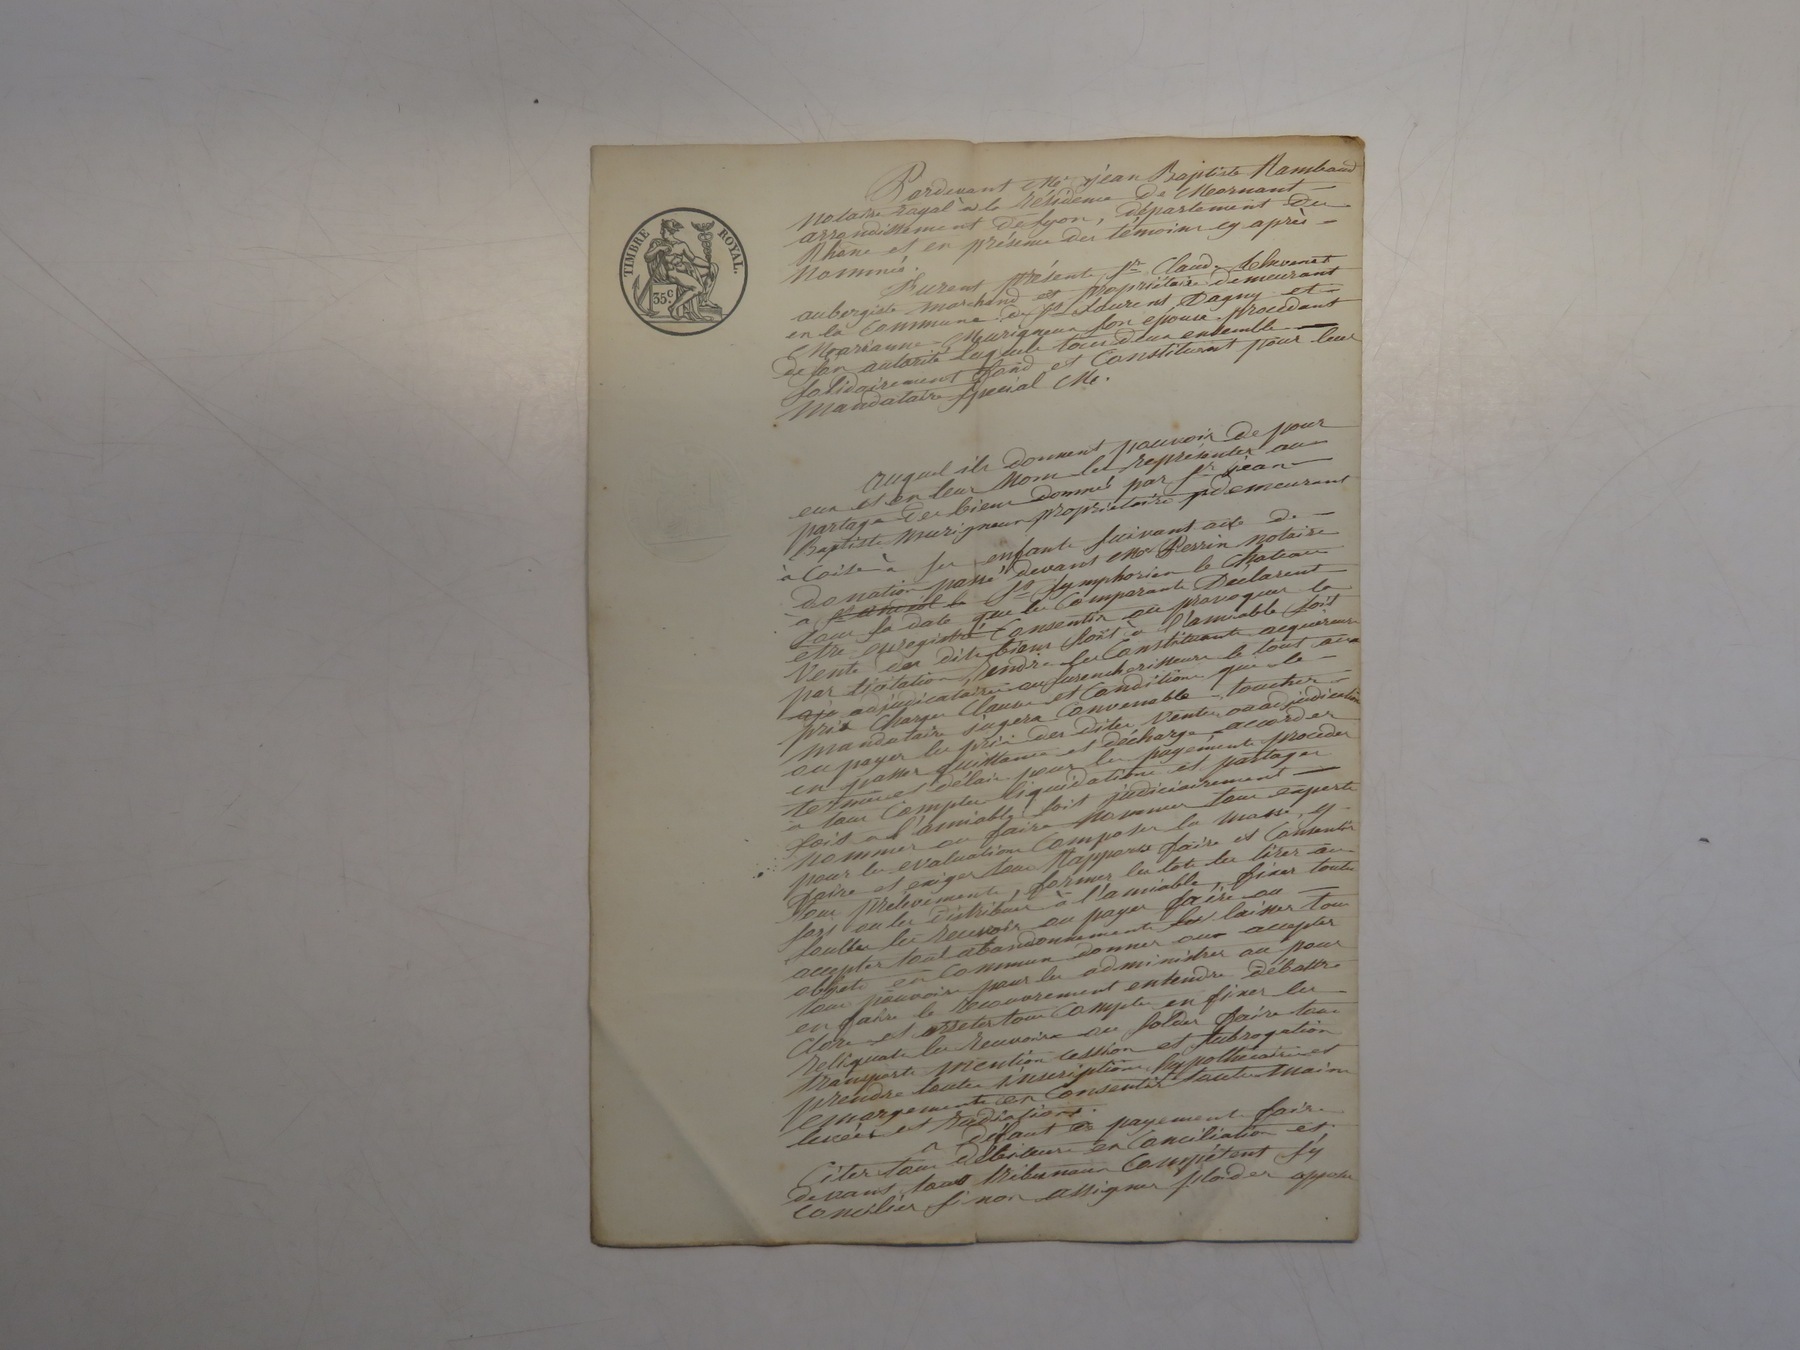 TIMBRE ROYAL.
35c
Pardevant Me jean Baptiste Rambaud
notaire royal à la résidence de Mornant
arrondissement de Lyon, département du
Rhône et en présence des témoins cy après
Nommés.
furent présents Sr Claude
aubergiste marchand et propriétaire demeurant
en la Commune de St Laurent Dagny et
Marianne Murigneux son épouse procedant
de son autorité lesquels tous deux ensemble
solidairement font et Constituent pour leur
Mandataire spécial Me.
auquel ils donnent pouvoir de pour
eux et en leur Nom les représenter au
partage des biens donnés par Sr jean
Baptiste Murigneux propriétaire demeurant
à Coise à ses enfants suivant acte de
donation passé devant Me Perrin notaire
à St Symphorien le Chateau
sous sa date que les Comparants Déclarent
être enregistré Consentir ou provoquer la
Vente des dits biens soit à l'amiable soit
par licitation, rendre les Constituants acquéreurs
adjudicataires ou surencherisseurs le tout aux
prix Charges Clauses et Conditions que le
Mandataire jugera Convenable, toucher
ou payer les prix des dites Ventes ou adjudication
en passer quittance et décharge accorder
termes et délais pour les payements procéder
à tous Comptes liquidations et partages
soit à l'amiable soit judiciairement
nommer ou faire nommer tous experts
pour les evaluations Composer la masse, y
faire et exiger tous Rapports faire et Consentir
tous prélevements, former les lots les tirer au
sort ou les distribuer à l'amiable, fixer toutes
soultes les recevoir ou payer faire ou
accepter tout abandonnement laisser tous
objets en Commun donner ou accepter
tous pouvoirs pour les administrer ou pour
en faire le recouvrement entendre débattre
Clore et arreter tous Comptes en fixer les
Reliquats les recevoir ou solder faire tous
transports mention cession et subrogation
prendre toutes inscriptions hypothécaires et
emargements en Consentir toutes Main
levées et radiations.
à défaut de payement faire
Citer tous débiteurs en Conciliation et
devant tous tribunaux Compétent s'y
Concilier sinon assigner plaider appeler